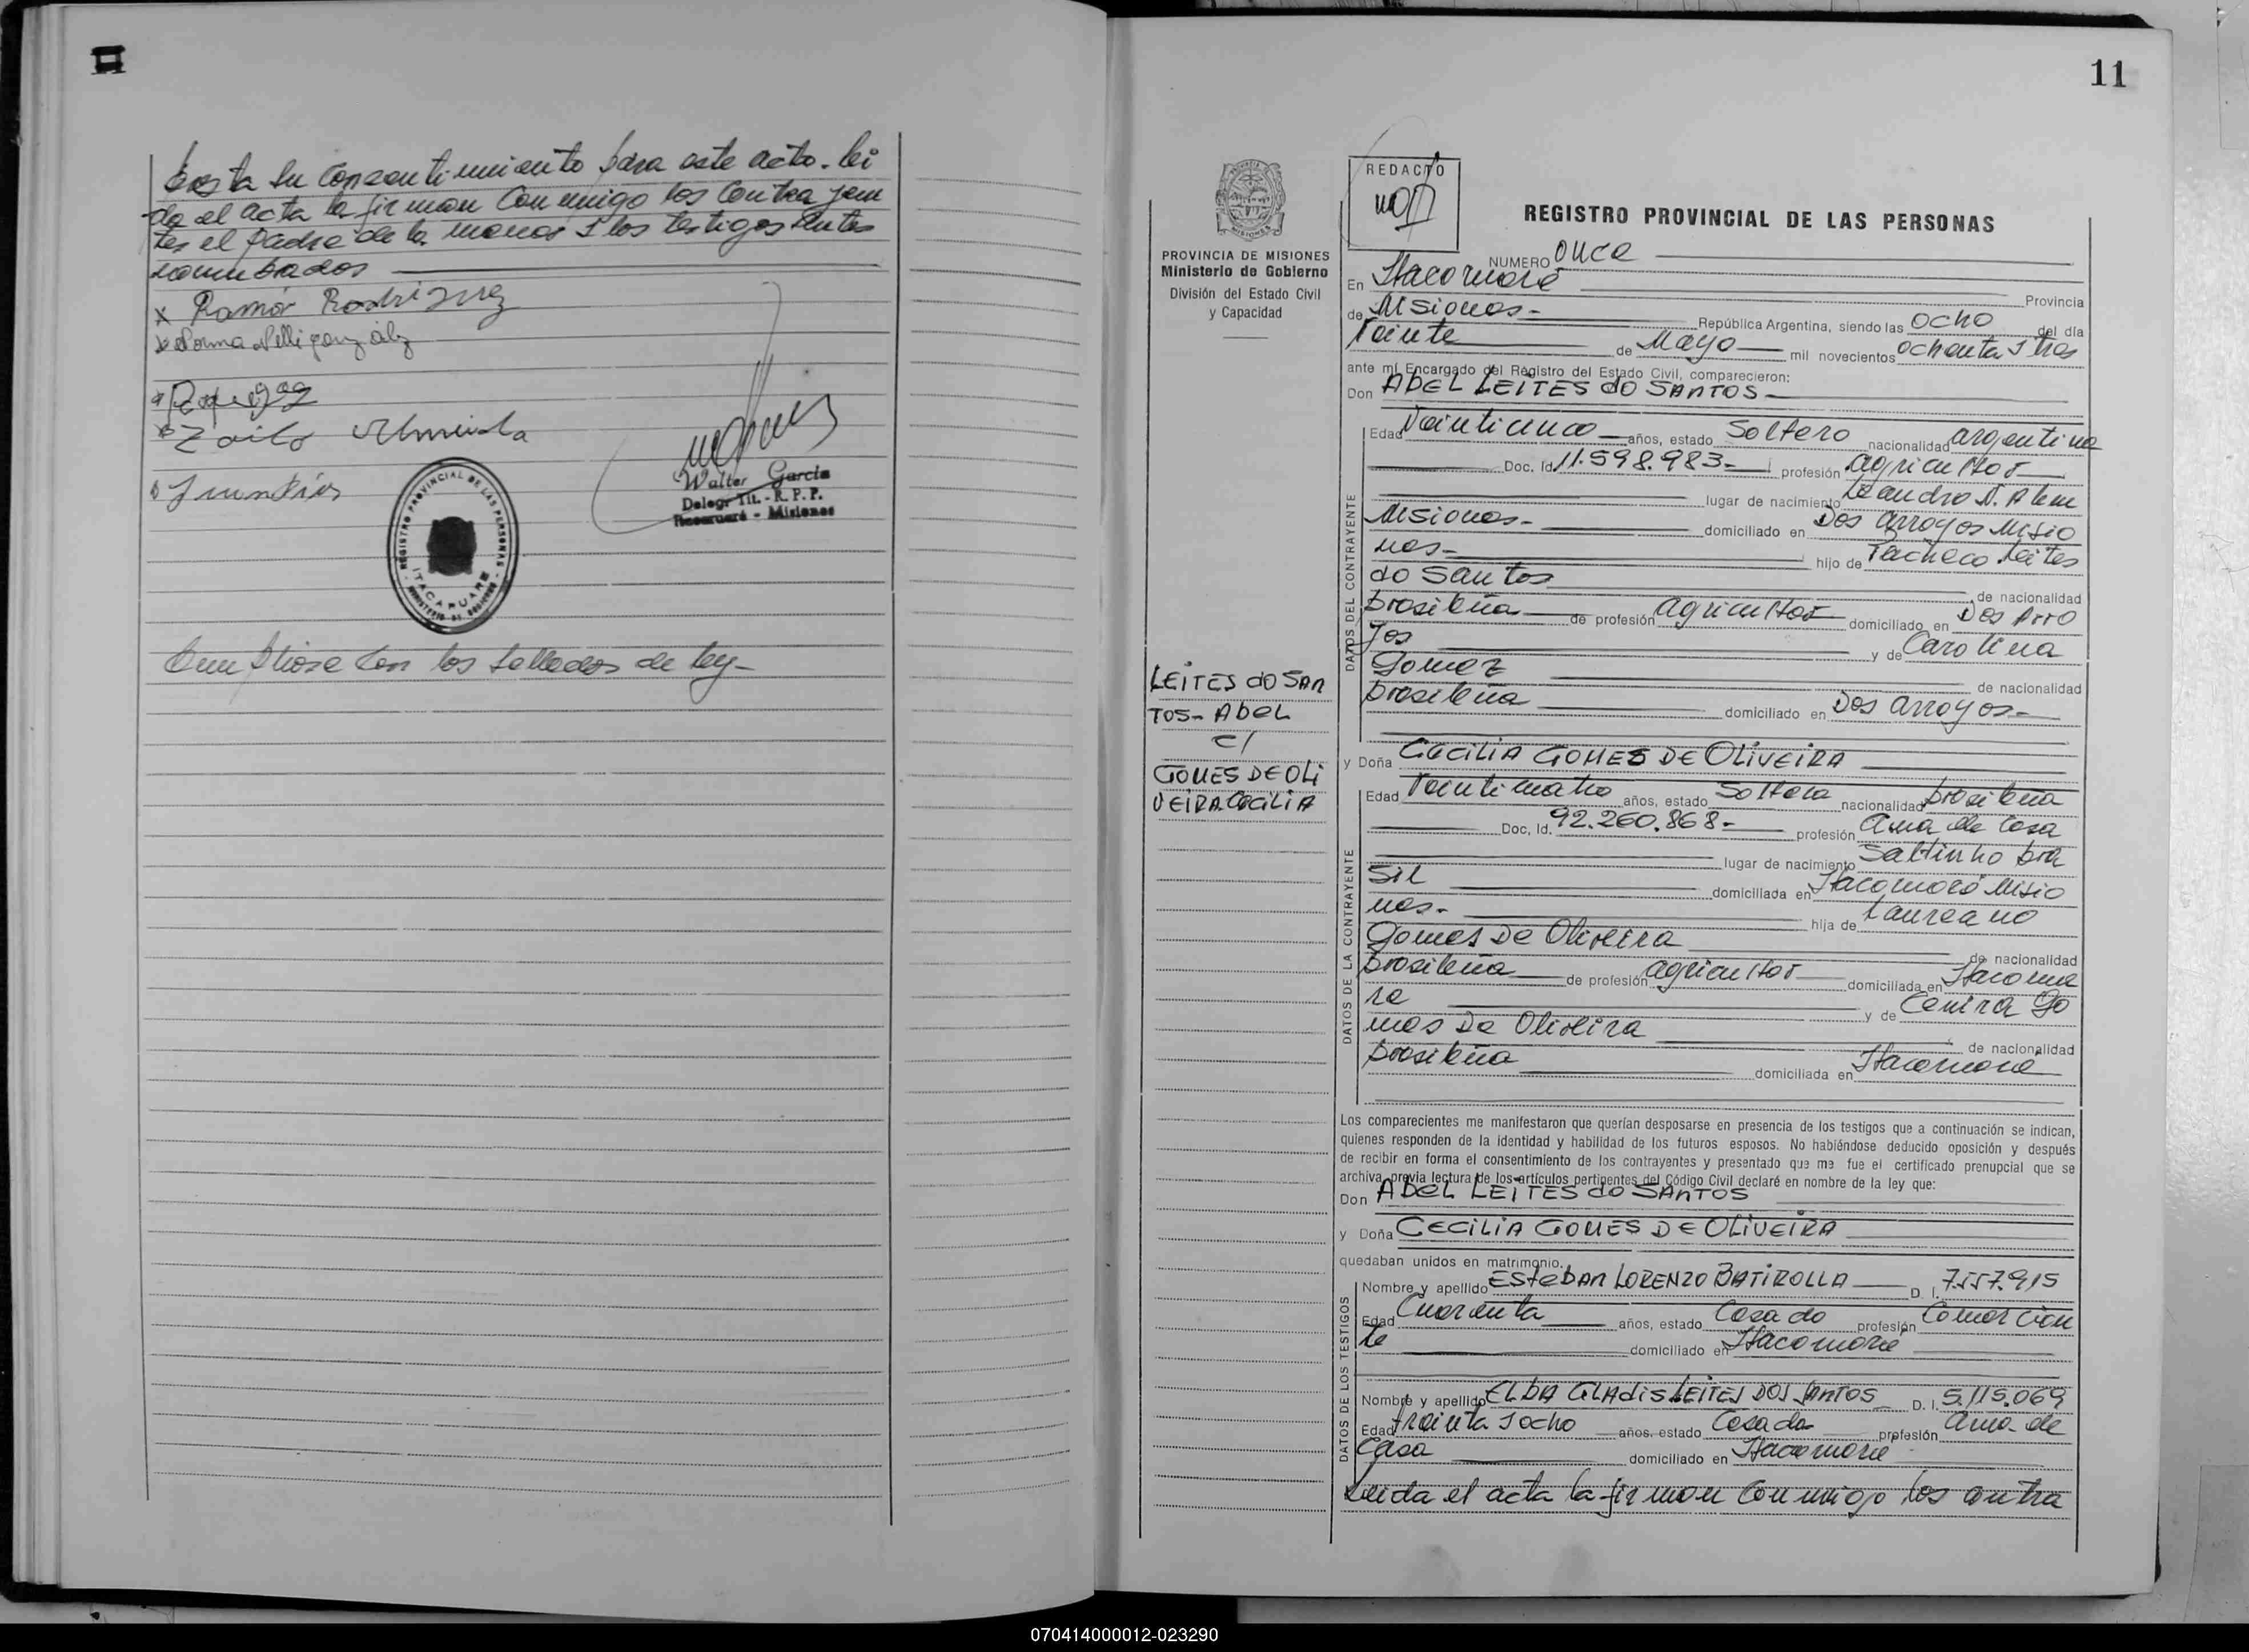 presta su consentimiento para este acto. lei
da el acta la firman conmigo los contrayen
tes el padre de la menor y los testigos antes
nombrados
x Ramón Rodríguez
x Norma Nelli gonzález
x Zoilo Almeida
Walter García
Delegr Tit. - R. P. P.
Itacaruaré - Misiones
REGISTRO PROVINCIAL DE LAS PERSONAS
ITACARUARE
MINISTERIO DE GOBIERNO
Cumpliose con los sellados de ley-
11
REDACTO
PROVINCIA DE MISIONES
Ministerio de Gobierno
División del Estado Civil
y Capacidad
LEITES dO SAN
TOS- AbEL
C/
GOMES DE OLI
VEIRA. CECILIA
REGISTRO PROVINCIAL DE LAS PERSONAS
NUMERO once
En Itacaruaré Provincia
de Misiones- República Argentina, siendo las ocho del día
Veinte de Mayo mil novecientos ochenta y tres
ante mí Encargado del Registro del Estado Civil, comparecieron:
Don AbEL LEITES dO SANTOS-
DATOS DEL CONTRAYENTE
Edad Veinticinco años, estado Soltero nacionalidad argentina
Doc. Id. 11.598.983- profesión agricultor
lugar de nacimiento Leandro N. Alem
Misiones- domiciliado en Dos Arroyos Misio
nes- hijo de Pacheco Leites
do Santos de nacionalidad
brasileña de profesión agricultor domiciliado en Dos Arro
yos y de Carolina
Gomez de nacionalidad
brasileña domiciliado en Dos Arroyos-
y Doña CECILIA GOMES DE OLIVEIRA
DATOS DE LA CONTRAYENTE
Edad Veinticuatro años, estado Soltera nacionalidad brasileña
Doc, Id. 92.260.868- profesión ama de casa
lugar de nacimiento Saltinho bra
sil domiciliada en Itacaruaré Misio
nes- hija de Laureano
Gomes De Oliveira de nacionalidad
brasileña de profesión agricultor domiciliada en Itacarua
ré y de Cenira Go
mes De Oliveira de nacionalidad
brasileña domiciliada en Itacaruaré
Los comparecientes me manifestaron que querían desposarse en presencia de los testigos que a continuación se indican,
quienes responden de la identidad y habilidad de los futuros esposos. No habiéndose deducido oposición y después
de recibir en forma el consentimiento de los contrayentes y presentado que me fue el certificado prenupcial que se
archiva previa lectura de los artículos pertinentes del Código Civil declaré en nombre de la ley que:
Don AbEL LEITES dO SANTOS
y Doña CECILIA GOMES DE OLIVEIRA
quedaban unidos en matrimonio.
DATOS DE LOS TESTIGOS
Nombre y apellido EStEbAn LORENZO BATIROLLA D. I. 7.557.915
Edad Cuarenta años, estado Casado profesión Comercian
te domiciliado en Itacaruaré
Nombre y apellido ELbA GLAdiS LEITES DOS SANTOS D. I. 5.115.069
Edad treinta y ocho años, estado Casada profesión ama de
casa domiciliado en Itacaruaré
Leida el acta la firman conmigo los contra
070414000012-023290